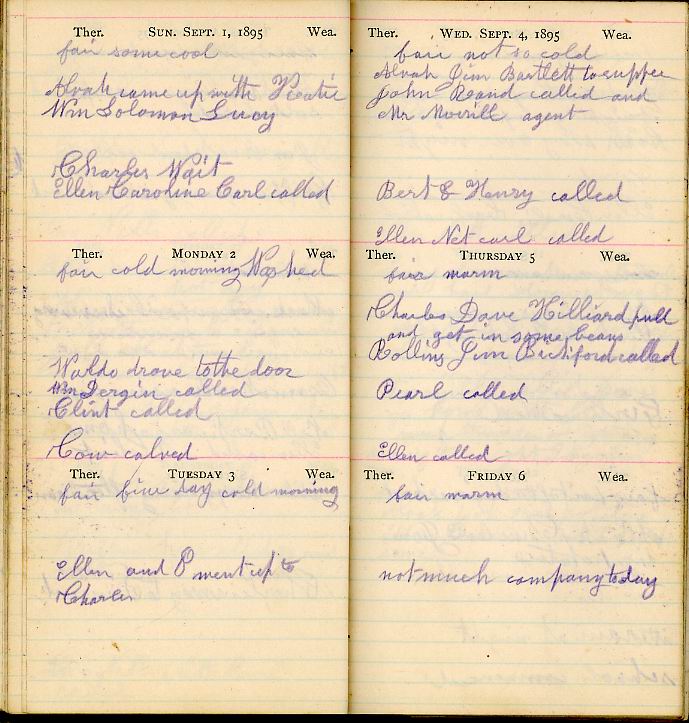 Ther. SUN. SEPT. 1, 1895 Wea.
fair some cool
Alvah came up with Katie
Wm Solomon Lucy
Charles Wait
Ellen Caroline Carl called
Ther. MONDAY 2 Wea.
fair cold morning Washed
Waldo drove to the door
Wm Dergin called
Clint called
Cow calved
Ther. TUESDAY 3 Wea.
fair fine day cold morning
Ellen and I went up to
Charles
Ther. WED. SEPT. 4, 1895 Wea.
fair not so cold
Alvah Jim Bartlett to supper
John Rand called and
Mr Morrill agent
Bert E Henry called
Ellen Net carl called
Ther. THURSDAY 5 Wea.
fair warm
Charles Dave Hilliard pull
and get in some beans
Rollins Jim Bickford called
Pearl called
Ellen called
Ther. FRIDAY 6 Wea.
fair warm
not much company today